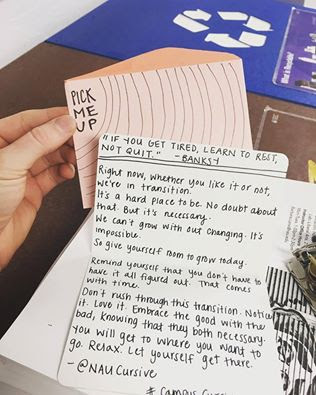 PICK
ME
UP
"IF YOU GET TIRED, LEARN TO REST,
NOT QUIT." -BANKSY
Right now, whether you like it or not,
we're in transition.
It's a hard place to be. No doubt about
that. But it's necessary.
We can't grow with out changing. It's
impossible.
So give yourself room to grow today.
Remind yourself that you don't have to
have it all figured out. That comes
with time.
Don't rush through this transition. Notice
it. Love it. Embrace the good with the
bad, knowing that they both necessary.
You will get to where you want to
go. Relax. Let yourself get there.
- @NAUCursive
# Campus Cursive
What is Recyclable?